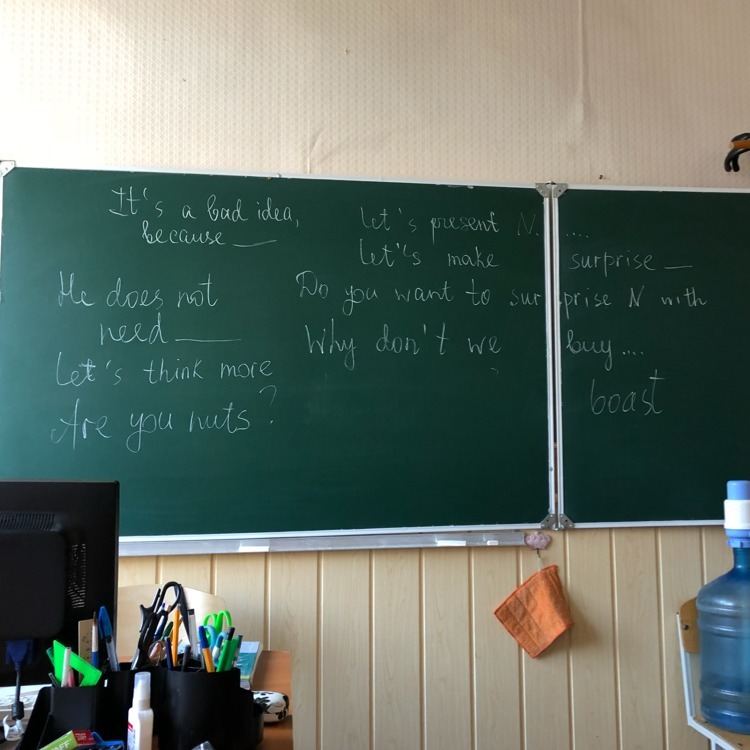 It's a bad idea,
because ___
He does not
need ___
Let's think more
Are you nuts?
let's present N. ....
let's make surprise __
Do you want to surprise N with
Why don't we buy....
boast